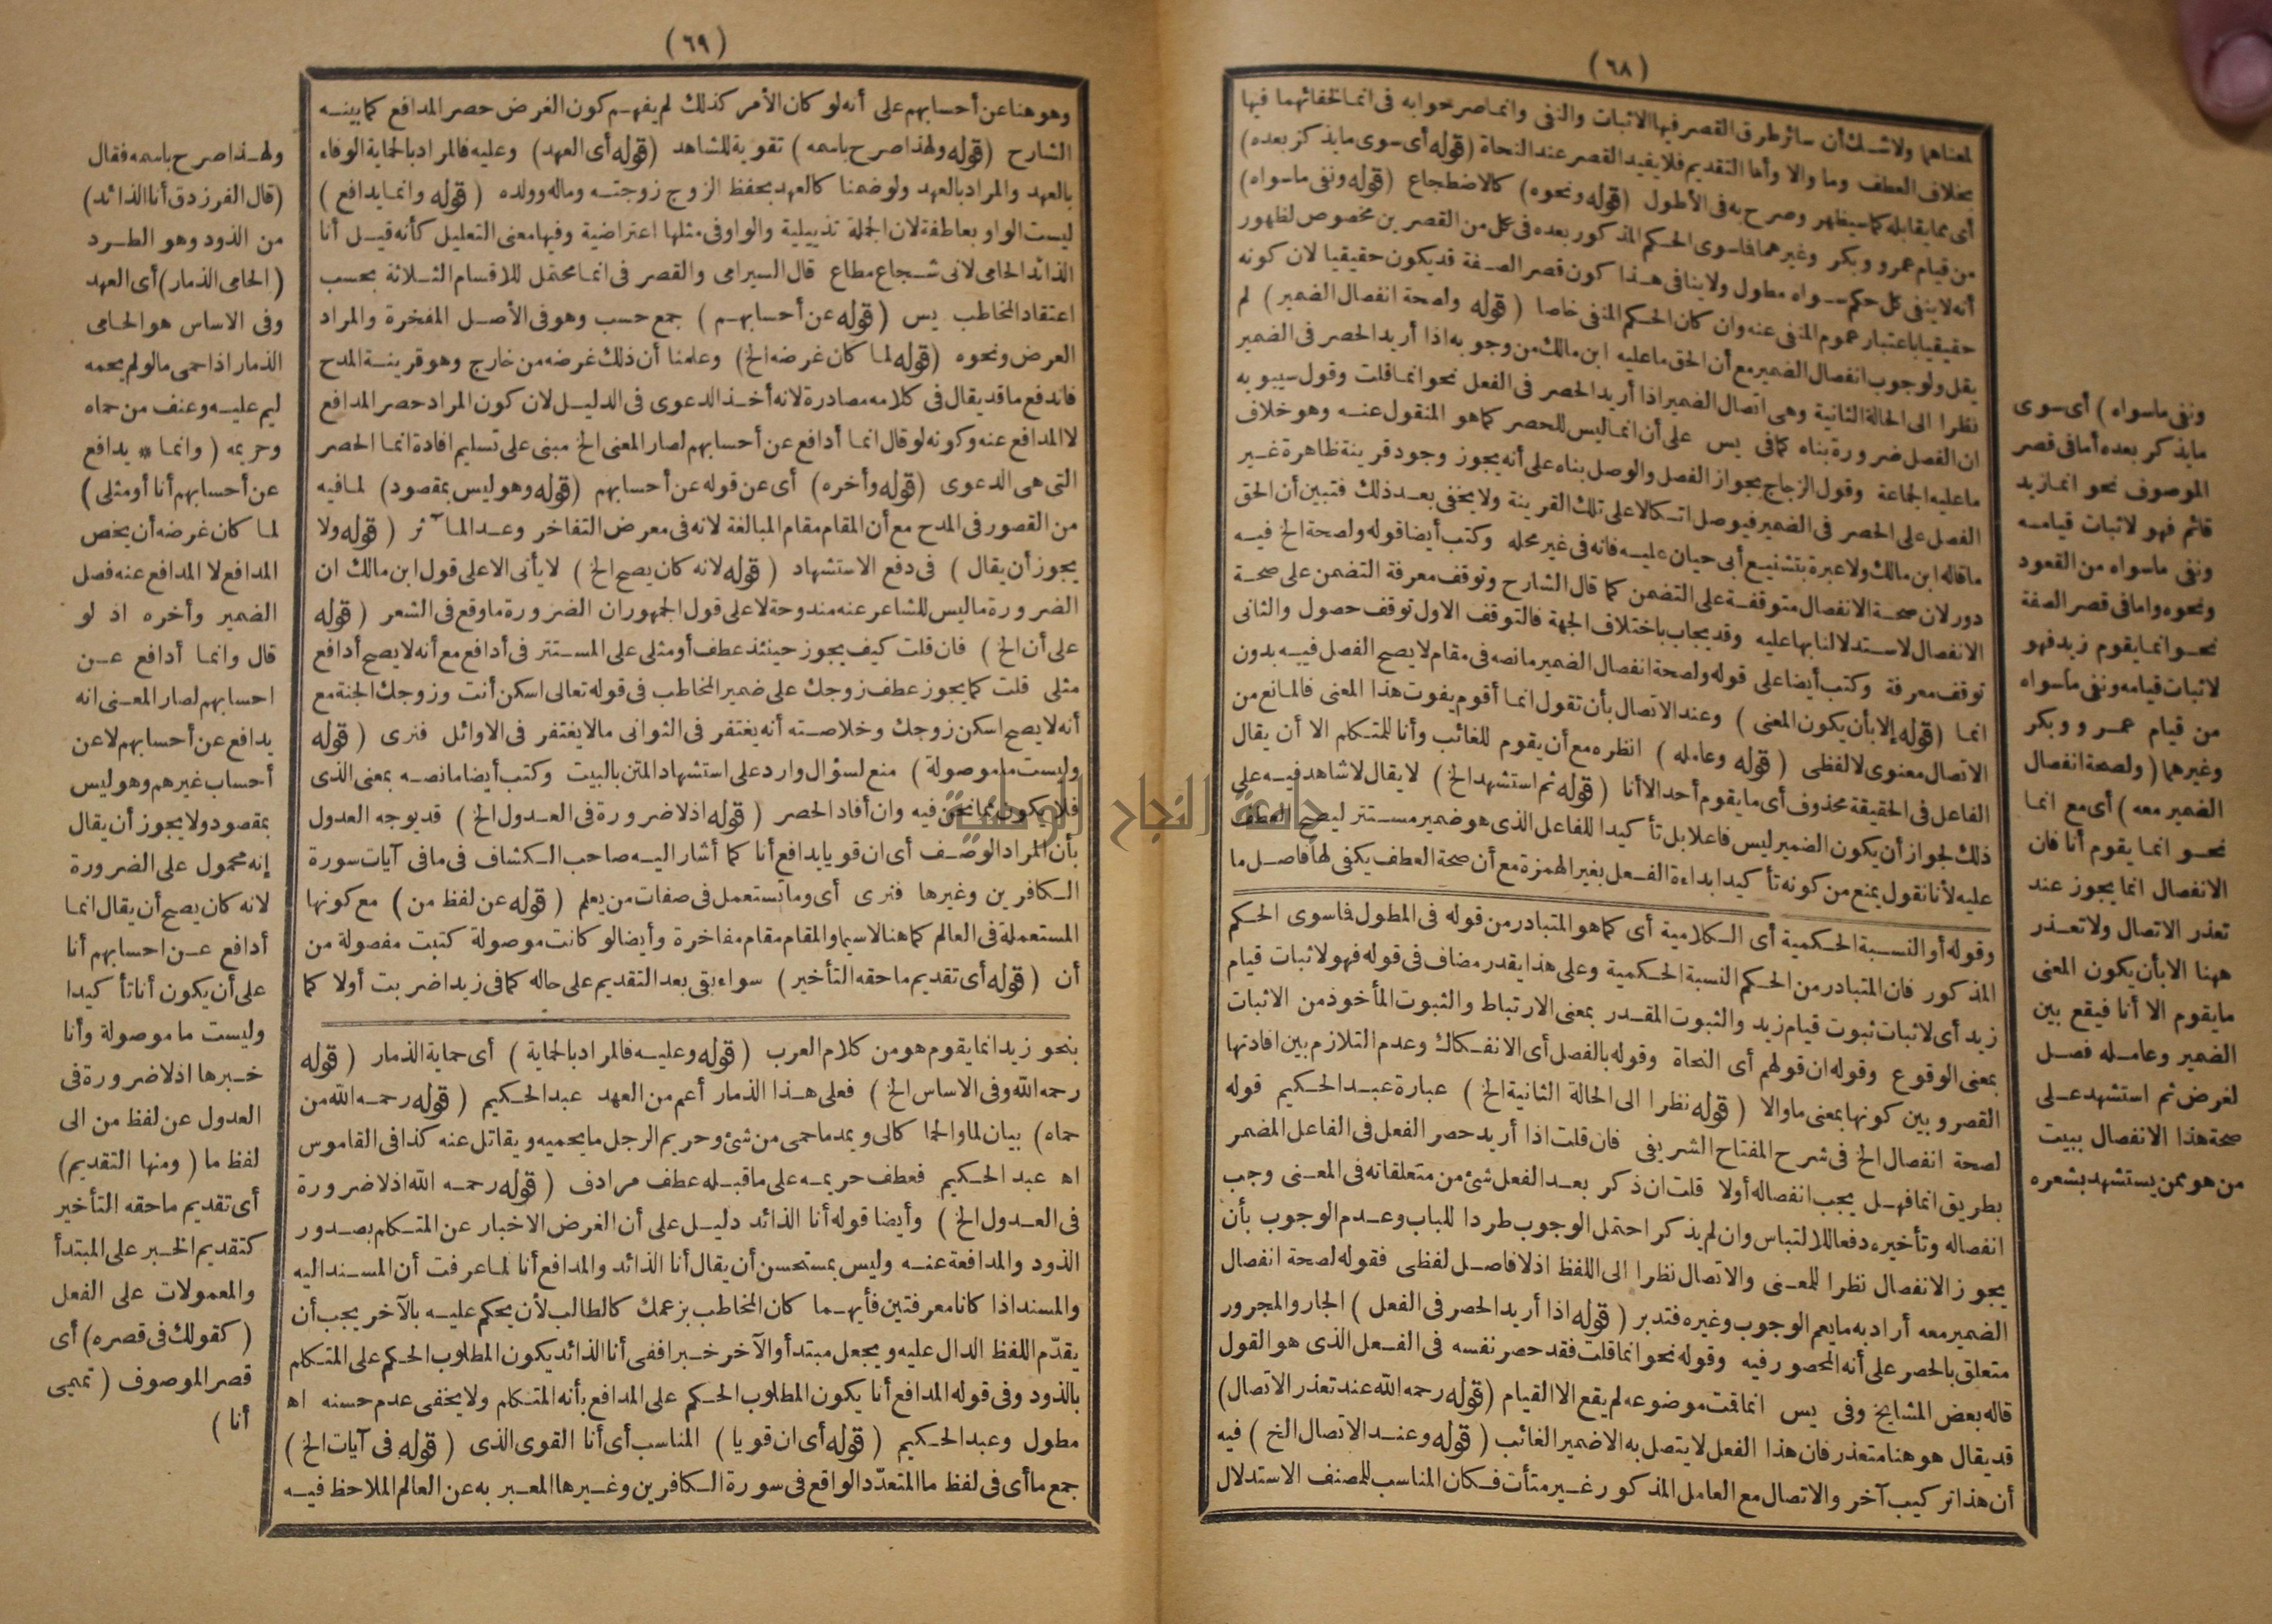 (٦٨)
لمعناهما ولا شك أن سائر طرق القصر فيها الاثبات والنفى وانما صرحوا به فى انما لخفائهما فيها
بخلاف العطف وما والا وأما التقديم فلا يفيد القصر عند النحاة (قوله أى سوى ما يذكر بعده)
أى مما يقابله كما سيظهر وصرح به فى الأطول (قوله ونحوه) كالاضطجاع (قوله ونفى ما سواه)
من قيام عمرو وبكر وغيرهما فما سوى الحكم المذكور بعده فى كل من القصرين مخصوص لظهور
أنه لا ينفى كل حكم سواه مطول ولا ينافى هذا كون قصر الصفة قد يكون حقيقيا لان كونه
حقيقيا باعتبار عموم المنفى عنه وان كان الحكم المنفى خاصا (قوله ولصحة انفصال الضمير) لم
يقل ولوجوب انفصال الضمير مع أن الحق ما عليه ابن مالك من وجوبه اذا أريد الحصر فى الضمير
نظرا الى الحالة الثانية وهى اتصال الضمير اذا أريد الحصر فى الفعل نحو انما قلت وقول سيبويه
ان الفصل ضرورة بناه كما فى يس على أن انما ليس للحصر كما هو المنقول عنه وهو خلاف
ما عليه الجماعة وقول الزجاج بجواز الفصل والوصل بناه على أنه يجوز وجود قرينة ظاهرة غير
الفصل على الحصر فى الضمير فيوصل اتكالا على تلك القرينة ولا يخفى بعد ذلك فتبين أن الحق
ما قاله ابن مالك ولا عبرة بتشنيع أبى حيان عليه فانه فى غير محله وكتب أيضا قوله ولصحة الخ فيه
دور لان صحة الانفصال متوقفة على التضمن كما قال الشارح وتوقف معرفة التضمن على صحة
الانفصال لاستدلالنا بها عليه وقد يجاب باختلاف الجهة فالتوقف الاول توقف حصول والثانى
توقف معرفة وكتب أيضا على قوله ولصحة انفصال الضمير ما نصه فى مقام لا يصح الفصل فيه بدون
انما (قوله إلا بأن يكون المعنى) وعند الاتصال بأن تقول انما أقوم يفوت هذا المعنى فالمانع من
الاتصال معنوى لا لفظى (قوله وعامله) انظره مع أن يقوم للغائب وأنا للمتكلم الا أن يقال
الفاعل فى الحقيقة محذوف أى ما يقوم أحد الا أنا (قوله ثم استشهد الخ) لا يقال لا شاهد فيه على
ذلك لجواز أن يكون الضمير ليس فاعلا بل تأكيدا للفاعل الذى هو ضمير مستتر ليصح العطف
عليه لأنا نقول يمنع من كونه تأكيدا بداءة الفعل بغير الهمزة مع أن صحة العطف يكفى لها فاصل ما
وقوله أو النسبة الحكمية أى الكلامية أى كما هو المتبادر من قوله فى المطول فما سوى الحكم
المذكور فان المتبادر من الحكم النسبة الحكمية وعلى هذا يقدر مضاف فى قوله فهو لاثبات قيام
زيد أى لاثبات ثبوت قيام زيد والثبوت المقدر بمعنى الارتباط والثبوت المأخوذ من الاثبات
بمعنى الوقوع وقوله ان قولهم أى النحاة وقوله بالفصل أى الانفكاك وعدم التلازم بين افادتها
القصر وبين كونها بمعنى ما والا (قوله نظرا الى الحالة الثانية الخ) عبارة عبد الحكيم قوله
لصحة انفصال الخ فى شرح المفتاح الشريفى فان قلت اذا أريد حصر الفعل فى الفاعل المضمر
بطريق انما فهل يجب انفصاله أولا قلت ان ذكر بعد الفعل شئ من متعلقاته فى المعنى وجب
انفصاله وتأخيره دفعا للالتباس وان لم يذكر احتمل الوجوب طردا للباب وعدم الوجوب بأن
يجوز الانفصال نظرا للمعنى والاتصال نظرا الى اللفظ اذ لا فاصل لفظى فقوله لصحة انفصال
الضمير معه أراد به ما يعم الوجوب وغيره فتدبر (قوله اذا أريد الحصر فى الفعل) الجار والمجرور
متعلق بالحصر على أنه المحصور فيه وقوله نحو انما قلت فقد حصر نفسه فى الفعل الذى هو القول
قاله بعض المشايخ وفى يس انما قمت موضوعه لم يقع الا القيام (قوله رحمه الله عند تعذر الاتصال)
قد يقال هو هنا متعذر فان هذا الفعل لا يتصل به الا ضمير الغائب (قوله وعند الاتصال الخ) فيه
أن هذا تركيب آخر والاتصال مع العامل المذكور غير متأت فكان المناسب للمصنف الاستدلال
ونفى ما سواه) أى سوى
ما يذكر بعده أما فى قصر
الموصوف نحو انما زيد
قائم فهو لاثبات قيامه
ونفى ما سواه من القعود
ونحوه واما فى قصر الصفة
نحو انما يقوم زيد فهو
لاثبات قيامه ونفى ما سواه
من قيام عمرو وبكر
وغيرهما (ولصحة انفصال
الضمير معه) أى مع انما
نحو انما يقوم أنا فان
الانفصال انما يجوز عند
تعذر الاتصال ولا تعذر
ههنا الا بأن يكون المعنى
ما يقوم الا أنا فيقع بين
الضمير وعامله فصل
لغرض ثم استشهد على
صحة هذا الانفصال ببيت
من هو ممن يستشهد بشعره
(٦٩)
وهو هنا عن أحسابهم على أنه لو كان الأمر كذلك لم يفهم كون الغرض حصر المدافع كما بينه
الشارح (قوله ولهذا صرح باسمه) تقوية للشاهد (قوله أى العهد) وعليه فالمراد بالحماية الوفاء
بالعهد والمراد بالعهد ولو ضمنا كالعهد بحفظ الزوج زوجته وماله وولده (قوله وانما يدافع)
ليست الواو بعاطفة لان الجملة تذييلية والواو فى مثلها اعتراضية وفيها معنى التعليل كأنه قيل أنا
الذائد الحامى لانى شجاع مطاع قال السيرامى والقصر فى انما محتمل للاقسام الثلاثة بحسب
اعتقاد المخاطب يس (قوله عن أحسابهم) جمع حسب وهو فى الأصل المفخرة والمراد
العرض ونحوه (قوله لما كان غرضه الخ) وعلمنا أن ذلك غرضه من خارج وهو قرينة المدح
فاندفع ما قد يقال فى كلامه مصادرة لانه أخذ الدعوى فى الدليل لان كون المراد حصر المدافع
لا المدافع عنه وكونه لو قال انما أدافع عن أحسابهم لصار المعنى الخ مبنى على تسليم افادة انما الحصر
التى هى الدعوى (قوله وأخره) أى عن قوله عن أحسابهم (قوله وهو ليس بمقصود) لما فيه
من القصور فى المدح مع أن المقام مقام المبالغة لانه فى معرض التفاخر وعد المآثر (قوله ولا
يجوز أن يقال) فى دفع الاستشهاد (قوله لانه كان يصح الخ) لا يأتى الا على قول ابن مالك ان
الضرورة ما ليس للشاعر عنه مندوحة لا على قول الجمهور ان الضرورة ما وقع فى الشعر (قوله
على أن الخ) فان قلت كيف يجوز حينئذ عطف أو مثلى على المستتر فى أدافع مع أنه لا يصح أدافع
مثلى قلت كما يجوز عطف زوجك على ضمير المخاطب فى قوله تعالى اسكن أنت وزوجك الجنة مع
أنه لا يصح اسكن زوجك وخلاصته أنه يغتفر فى الثوانى ما لا يغتفر فى الاوائل فنرى (قوله
وليست ما موصولة) منع لسؤال وارد على استشهاد المتن بالبيت وكتب أيضا ما نصه بمعنى الذى
فلا يكون مما نحن فيه وان أفاد الحصر (قوله اذ لا ضرورة فى العدول الخ) قد يوجه العدول
بأن المراد الوصف أى ان قويا يدافع أنا كما أشار اليه صاحب الكشاف فى ما فى آيات سورة
الكافرين وغيرها فنرى أى وما تستعمل فى صفات من يعلم (قوله عن لفظ من) مع كونها
المستعملة فى العالم كما هنا لاسيما والمقام مقام مفاخرة وأيضا لو كانت موصولة كتبت مفصولة من
أن (قوله أى تقديم ما حقه التأخير) سواء بقى بعد التقديم على حاله كما فى زيدا ضربت أولا كما
بنحو زيد انما يقوم هو من كلام العرب (قوله وعليه فالمراد بالحماية) أى حماية الذمار (قوله
رحمه الله وفى الاساس الخ) فعلى هذا الذمار أعم من العهد عبد الحكيم (قوله رحمه الله من
حماه) بيان لما والحما كالى ويمد ما حمى من شئ وحريم الرجل ما يحميه ويقاتل عنه كذا فى القاموس
اه عبد الحكيم فعطف حريمه على ما قبله عطف مرادف (قوله رحمه الله اذ لا ضرورة
فى العدول الخ) وأيضا قوله أنا الذائد دليل على أن الغرض الاخبار عن المتكلم بصدور
الذود والمدافعة عنه وليس بمستحسن أن يقال أنا الذائد والمدافع أنا لما عرفت أن المسند اليه
والمسند اذا كانا معرفتين فأيهما كان المخاطب بزعمك كالطالب لأن يحكم عليه بالآخر يجب أن
يقدّم اللفظ الدال عليه ويجعل مبتدأ والآخر خبرا ففى أنا الذائد يكون المطلوب الحكم على المتكلم
بالذود وفى قوله المدافع أنا يكون المطلوب الحكم على المدافع بأنه المتكلم ولا يخفى عدم حسنه اه
مطول وعبد الحكيم (قوله أى ان قويا) المناسب أى أنا القوى الذى (قوله فى آيات الخ)
جمع ما أى فى لفظ ما المتعدّد الواقع فى سورة الكافرين وغيرها المعبر به عن العالم الملاحظ فيه
ولهذا صرح باسمه فقال
(قال الفرزدق أنا الذائد)
من الذود وهو الطرد
(الحامى الذمار) أى العهد
وفى الاساس هو الحامى
الذمار اذا حمى ما لو لم يحمه
ليم عليه وعنف من حماه
وحريمه (وانما * يدافع
عن أحسابهم أنا أو مثلى)
لما كان غرضه أن يخص
المدافع لا المدافع عنه فصل
الضمير وأخره اذ لو
قال وانما أدافع عن
احسابهم لصار المعنى انه
يدافع عن أحسابهم لا عن
أحساب غيرهم وهو ليس
بمقصود ولا يجوز أن يقال
إنه محمول على الضرورة
لانه كان يصح أن يقال انما
أدافع عن احسابهم أنا
على أن يكون أنا تأكيدا
وليست ما موصولة وأنا
خبرها اذ لا ضرورة فى
العدول عن لفظ من الى
لفظ ما (ومنها التقديم)
أى تقديم ما حقه التأخير
كتقديم الخبر على المبتدأ
والمعمولات على الفعل
(كقولك فى قصره) أى
قصر الموصوف (تميمى
أنا)
جامعة النجاح الوطنية